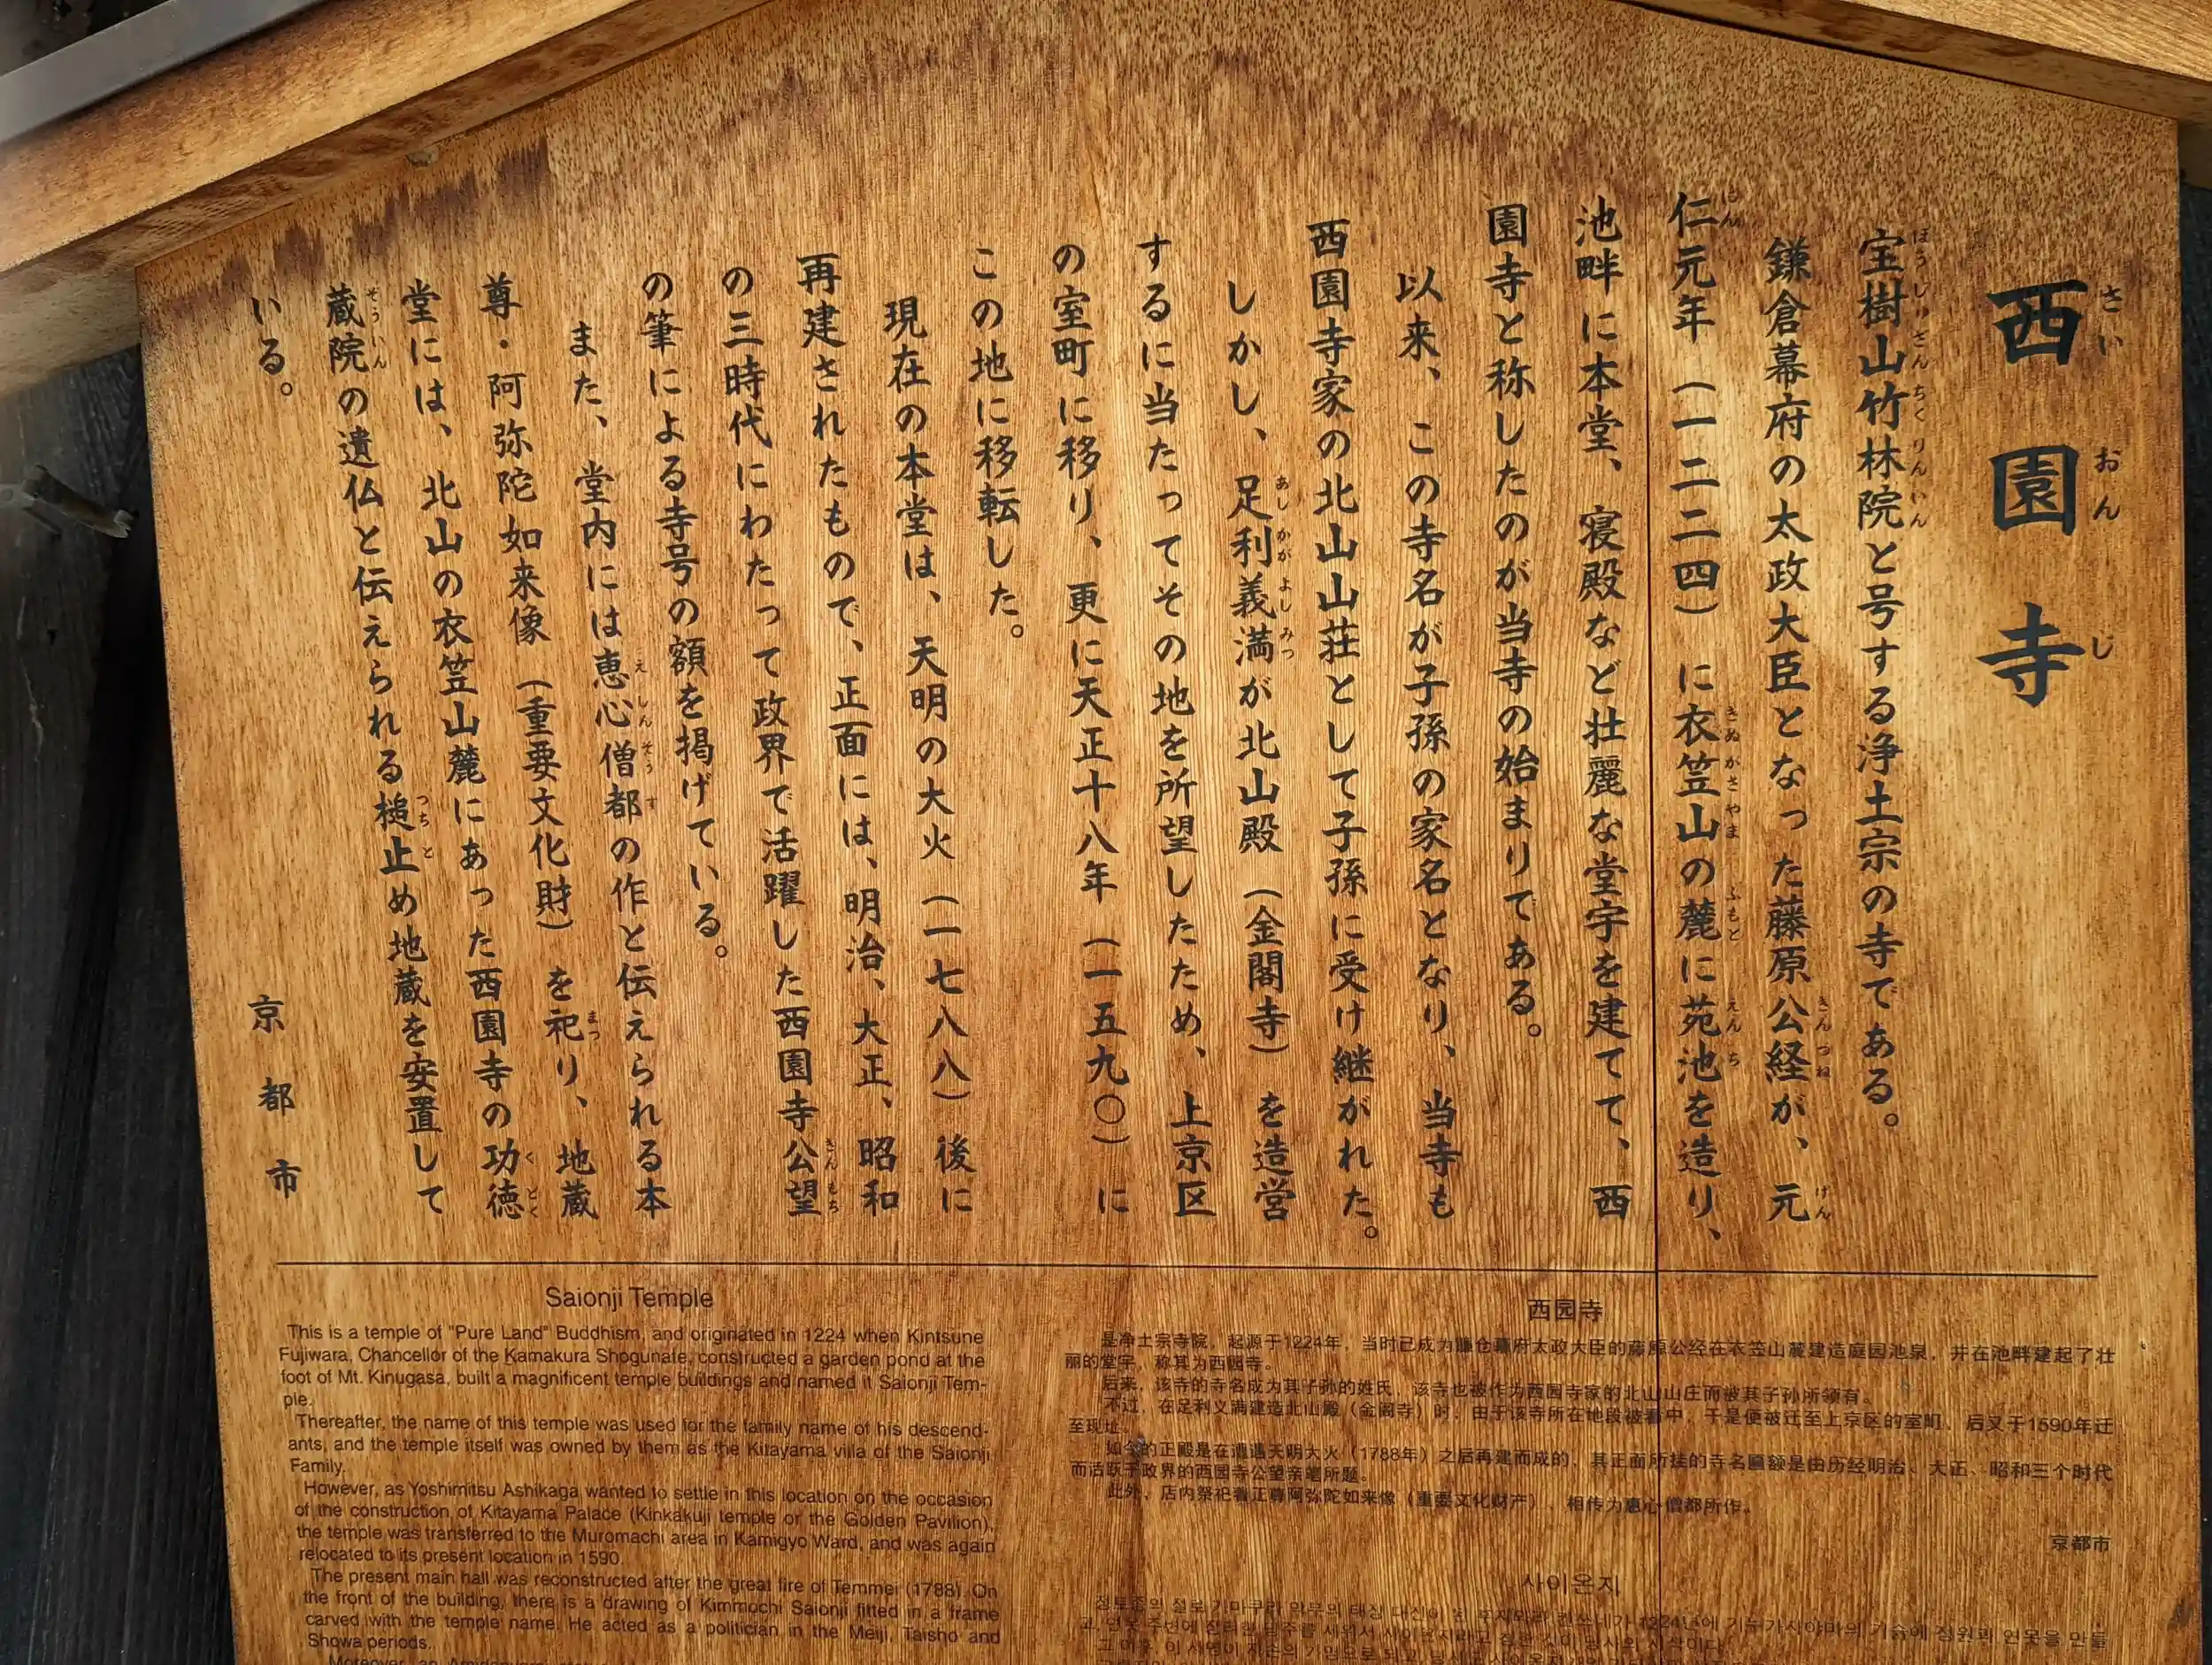 西園寺
宝樹山竹林院と号する浄土宗の寺である。
鎌倉幕府の太政大臣となった藤原公経が、元
仁元年（一二二四）に衣笠山の麓に苑池を造り、
池畔に本堂、寝殿など壮麗な堂宇を建てて、西
園寺と称したのが当寺の始まりである。
以来、この寺名が子孫の家名となり、当寺も
西園寺家の北山山荘として子孫に受け継がれた。
しかし、足利義満が北山殿（金閣寺）を造営
するに当たってその地を所望したため、上京区
の室町に移り、更に天正十八年（一五九〇）に
この地に移転した。
現在の本堂は、天明の大火（一七八八）後に
再建されたもので、正面には、明治、大正、昭和
の三時代にわたって政界で活躍した西園寺公望
の筆による寺号の額を掲げている。
また、堂内には恵心僧都の作と伝えられる本
尊・阿弥陀如来像（重要文化財）を祀り、地蔵
堂には、北山の衣笠山麓にあった西園寺の功徳
蔵院の遺仏と伝えられる槌止め地蔵を安置して
いる。
京都市
Saionji Temple
This is a temple of "Pure Land" Buddhism, and originated in 1224 when Kintsune
Fujiwara, Chancellor of the Kamakura Shogunate, constructed a garden pond at the
foot of Mt. Kinugasa, built a magnificent temple buildings and named it Saionji Tem-
ple.
Thereafter, the name of this temple was used for the family name of his descend-
ants, and the temple itself was owned by them as the Kitayama villa of the Saionji
Family.
However, as Yoshimitsu Ashikaga wanted to settle in this location on the occasion
of the construction of Kitayama Palace (Kinkakuji temple or the Golden Pavilion),
the temple was transferred to the Muromachi area in Kamigyo Ward, and was again
relocated to its present location in 1590.
The present main hall was reconstructed after the great fire of Temmei (1788). On
the front of the building, there is a drawing of Kimmochi Saionji fitted in a frame
carved with the temple name. He acted as a politician in the Meiji, Taisho and
Showa periods.
Moreover, an
西园寺
是净土宗寺院，起源于1224年，当时已成为鎌仓幕府太政大臣的藤原公经在衣笠山麓建造庭园池泉，并在池畔建起了壮
丽的堂宇，称其为西园寺。
后来，该寺的寺名成为其子孙的姓氏，该寺也被作为西园寺家的北山山庄而被其子孙所领有。
不过，在足利义满建造北山殿（金阁寺）时，由于该寺所在地段被看中，于是便被迁至上京区的室町，后又于1590年迁
至现址。
如今的正殿是在遭遇天明大火（1788年）之后再建而成的，其正面所挂的寺名匾额是由历经明治、大正、昭和三个时代
而活跃于政界的西园寺公望亲笔所题。
此外，店内祭祀着正尊阿弥陀如来像（重要文化财产），相传为惠心僧都所作。
京都市
사이온지